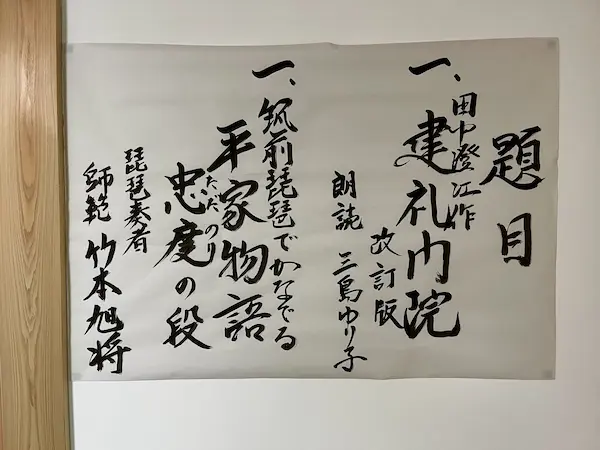 題目
一、田中澄江作
建礼門院
改訂版
朗読 三島ゆり子
一、筑前琵琶でかなでる
平家物語
忠度の段
ただのり
琵琶奏者
師範 竹本旭将